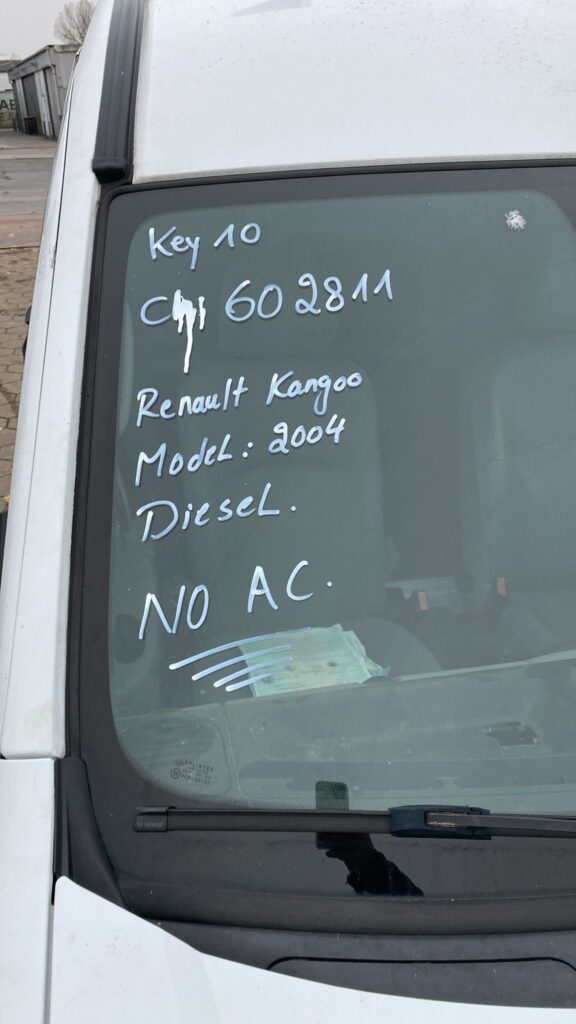 Key 10
602811
Renault Kangoo
Model: 2004
Diesel.
NO AC.